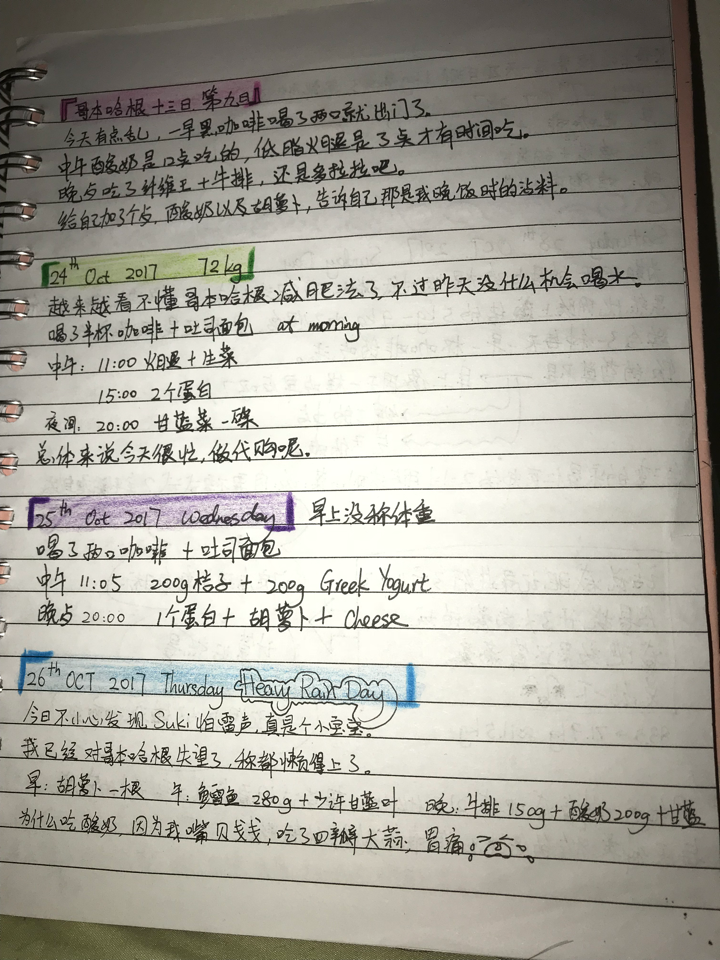 哥本哈根十三日 第九日
今天有点乱，一早黑咖啡喝了两口就出门了。
中午酸奶是12点吃的，低脂火腿是3点才有时间吃。
晚点吃了纤维王+牛排，还是多拉拉吧。
给自己加了个点，酸奶以及胡萝卜，告诉自己那是我晚饭时的沾料。
24th Oct 2017 72kg
越来越看不懂哥本哈根减肥法了，不过昨天没什么机会喝水。
喝了半杯咖啡+吐司面包 at morning
中午：11:00 火腿+生菜
15:00 2个蛋白
夜间：20:00 甘蓝菜一碟
总体来说今天很忙，做代购呢。
25th Oct 2017 Wednesday 早上没称体重
喝了两口咖啡+吐司面包
中午 11:05 200g桔子+200g Greek Yogurt
晚点 20:00 1个蛋白+胡萝卜+Cheese
26th OCT 2017 Thursday Heavy Rain Day
今日不小心发现 Suki怕雷声，真是个小宝宝。
我已经对哥本哈根失望了，称都懒得上了。
早：胡萝卜一根 午：鳕鱼 280g+少许甘蓝叶 晚：牛排150g+酸奶200g+甘蓝
为什么吃酸奶，因为我嘴贝戋戋，吃了四瓣大蒜，胃痛。